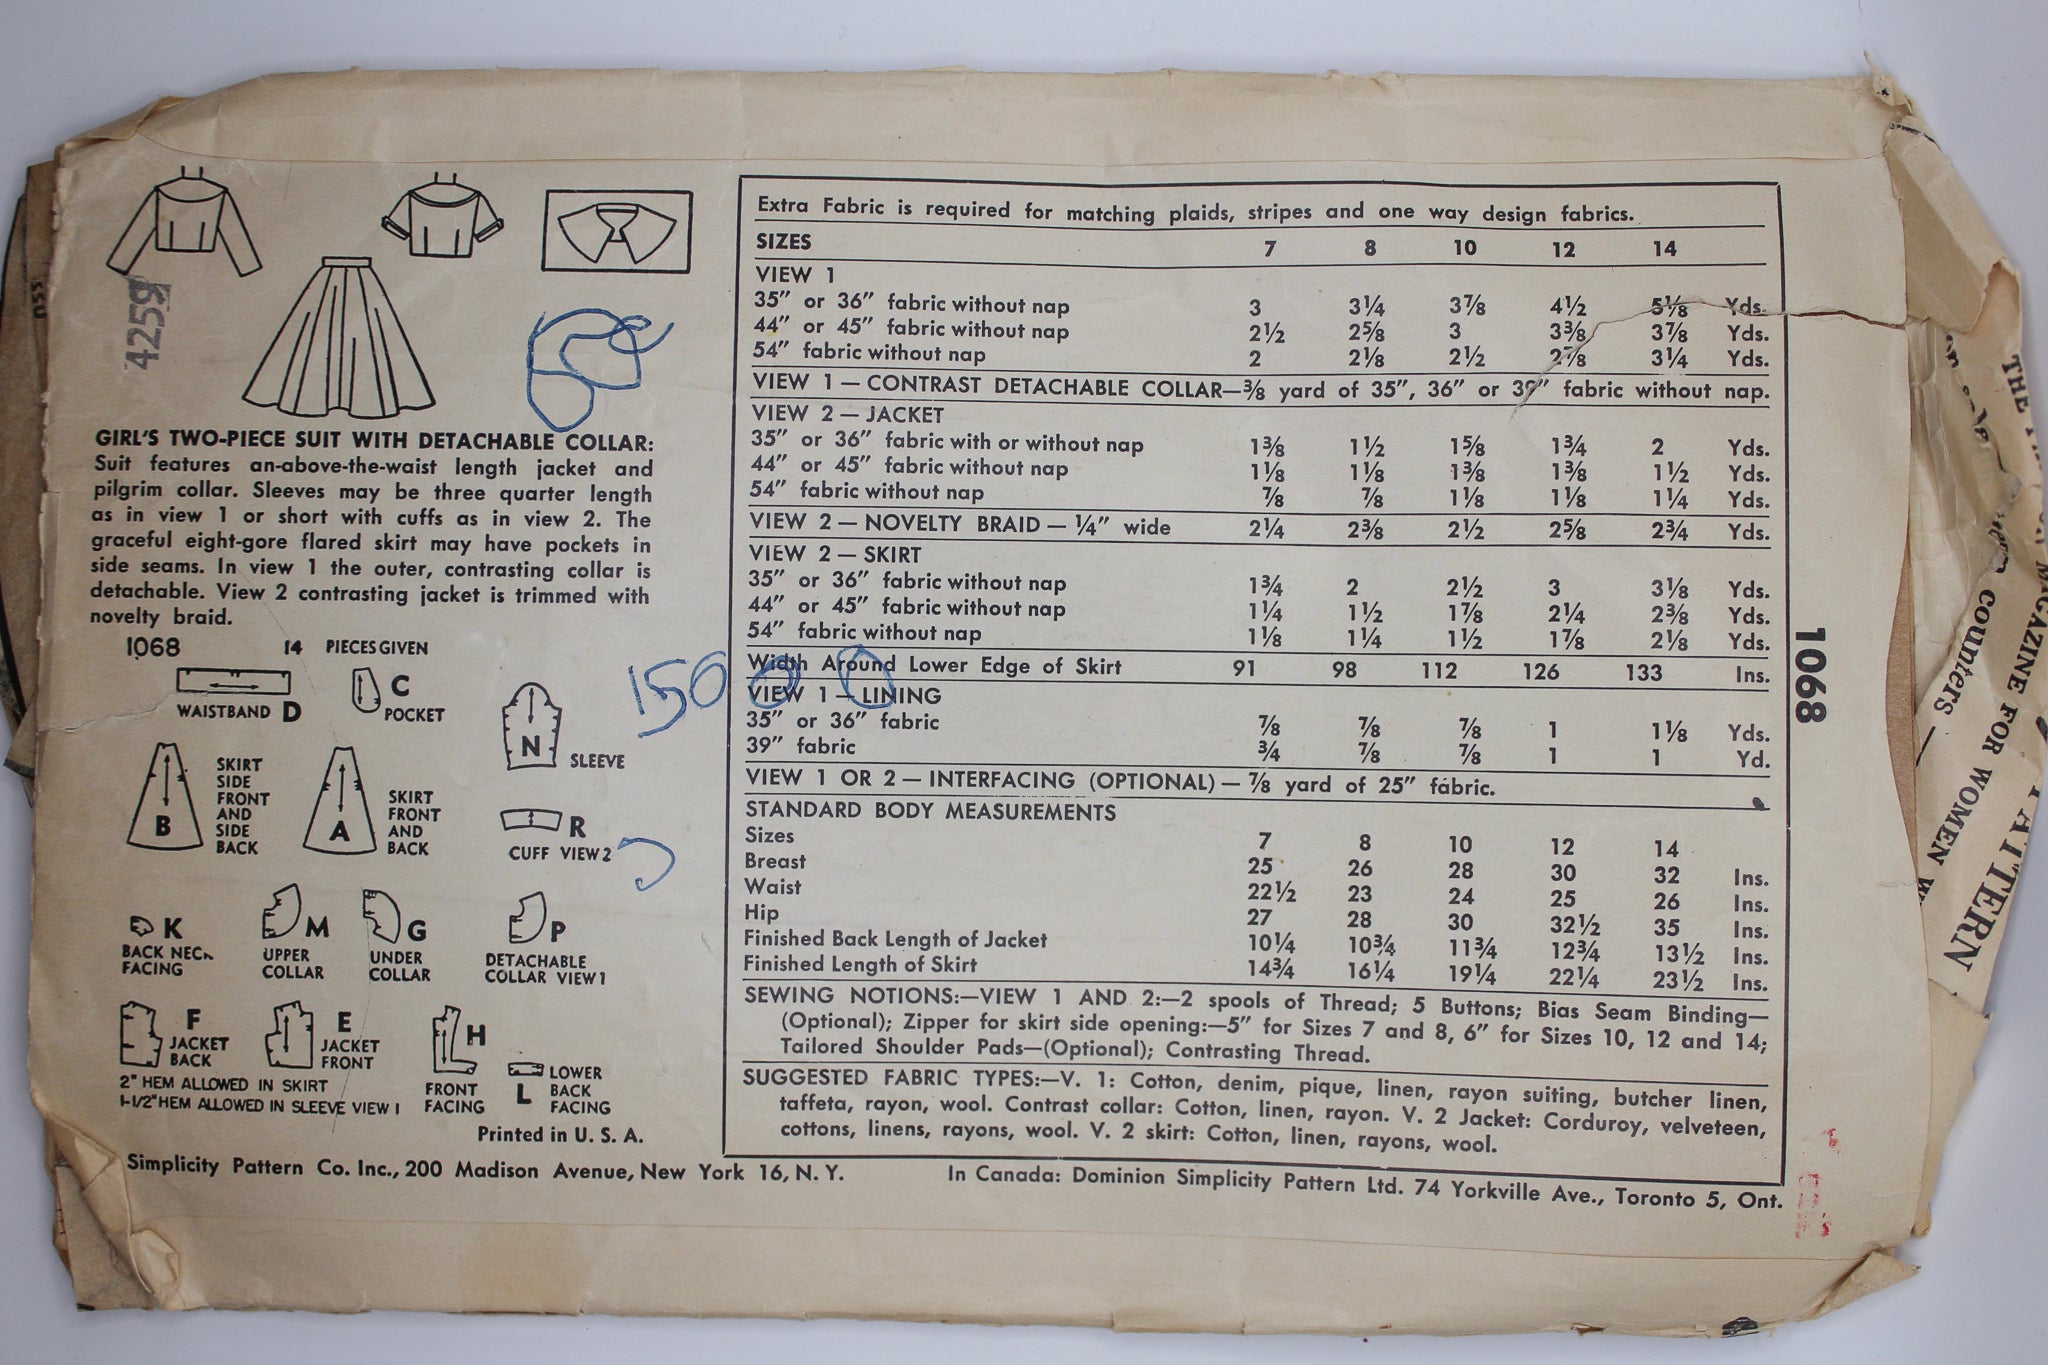 4259
GIRL'S TWO-PIECE SUIT WITH DETACHABLE COLLAR:
Suit features an-above-the-waist length jacket and
pilgrim collar. Sleeves may be three quarter length
as in view 1 or short with cuffs as in view 2. The
graceful eight-gore flared skirt may have pockets in
side seams. In view 1 the outer, contrasting collar is
detachable. View 2 contrasting jacket is trimmed with
novelty braid.
1068 14 PIECES GIVEN
WAISTBAND D
C
POCKET
N
SLEEVE
B
SKIRT
SIDE
FRONT
AND
SIDE
BACK
A
SKIRT
FRONT
AND
BACK
R
CUFF VIEW 2
K
BACK NECK
FACING
M
UPPER
COLLAR
G
UNDER
COLLAR
P
DETACHABLE
COLLAR VIEW 1
F
JACKET
BACK
E
JACKET
FRONT
H
FRONT
FACING
L
LOWER
BACK
FACING
2" HEM ALLOWED IN SKIRT
1-1/2" HEM ALLOWED IN SLEEVE VIEW 1
Printed in U. S. A.
Extra Fabric is required for matching plaids, stripes and one way design fabrics.
SIZES 7 8 10 12 14
VIEW 1
35" or 36" fabric without nap 3 3¼ 3⅞ 4½ 5⅛ Yds.
44" or 45" fabric without nap 2½ 2⅝ 3 3⅜ 3⅞ Yds.
54" fabric without nap 2 2⅛ 2½ 2⅞ 3¼ Yds.
VIEW 1 — CONTRAST DETACHABLE COLLAR—⅜ yard of 35", 36" or 39" fabric without nap.
VIEW 2 — JACKET
35" or 36" fabric with or without nap 1⅜ 1½ 1⅝ 1¾ 2 Yds.
44" or 45" fabric without nap 1⅛ 1⅛ 1⅜ 1⅜ 1½ Yds.
54" fabric without nap ⅞ ⅞ 1⅛ 1⅛ 1¼ Yds.
VIEW 2 — NOVELTY BRAID — ¼" wide 2¼ 2⅜ 2½ 2⅝ 2¾ Yds.
VIEW 2 — SKIRT
35" or 36" fabric without nap 1¾ 2 2½ 3 3⅛ Yds.
44" or 45" fabric without nap 1¼ 1½ 1⅞ 2¼ 2⅜ Yds.
54" fabric without nap 1⅛ 1¼ 1½ 1⅞ 2⅛ Yds.
Width Around Lower Edge of Skirt 91 98 112 126 133 Ins.
VIEW 1 — LINING
35" or 36" fabric ⅞ ⅞ ⅞ 1 1⅛ Yds.
39" fabric ¾ ⅞ ⅞ 1 1 Yd.
VIEW 1 OR 2 — INTERFACING (OPTIONAL) — ⅞ yard of 25" fabric.
STANDARD BODY MEASUREMENTS
Sizes 7 8 10 12 14
Breast 25 26 28 30 32 Ins.
Waist 22½ 23 24 25 26 Ins.
Hip 27 28 30 32½ 35 Ins.
Finished Back Length of Jacket 10¼ 10¾ 11¾ 12¾ 13½ Ins.
Finished Length of Skirt 14¾ 16¼ 19¼ 22¼ 23½ Ins.
SEWING NOTIONS:—VIEW 1 AND 2:—2 spools of Thread; 5 Buttons; Bias Seam Binding—
(Optional); Zipper for skirt side opening:—5" for Sizes 7 and 8, 6" for Sizes 10, 12 and 14;
Tailored Shoulder Pads—(Optional); Contrasting Thread.
SUGGESTED FABRIC TYPES:—V. 1: Cotton, denim, pique, linen, rayon suiting, butcher linen,
taffeta, rayon, wool. Contrast collar: Cotton, linen, rayon. V. 2 Jacket: Corduroy, velveteen,
cottons, linens, rayons, wool. V. 2 skirt: Cotton, linen, rayons, wool.
Simplicity Pattern Co. Inc., 200 Madison Avenue, New York 16, N. Y.
In Canada: Dominion Simplicity Pattern Ltd. 74 Yorkville Ave., Toronto 5, Ont.
1068
150
THE
MAGAZINE FOR WOMEN
counters —
PATTERN